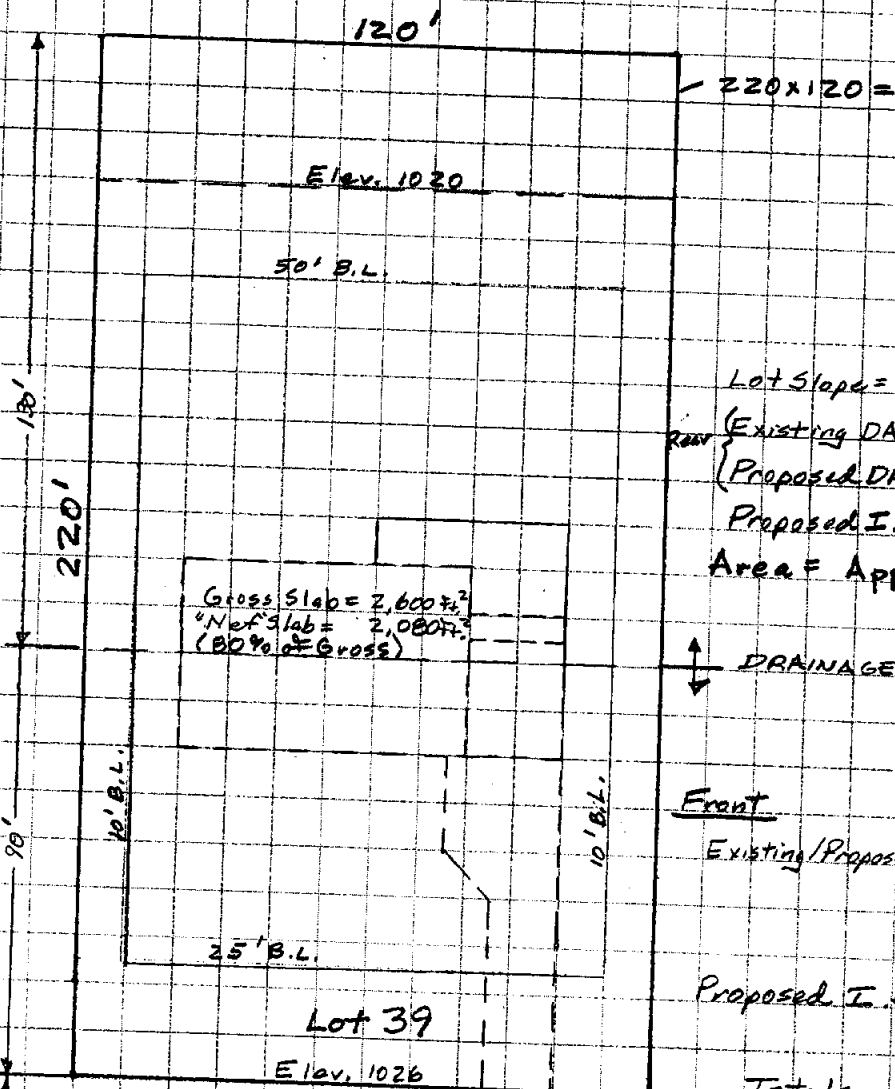 120'
220x120 =
Elev. 1020
50' B.L.
Lot Slope =
130'
Rear
Existing DA
Proposed DA
Proposed I.
220'
Area = App
Gross Slab = 2,600 ft.²
"Net" Slab = 2,080 ft.²
(80% of Gross)
DRAINAGE
10' B.L.
10' B.L.
Front
90'
Existing/Propos
25' B.L.
Proposed I.
Lot 39
Elev. 1026